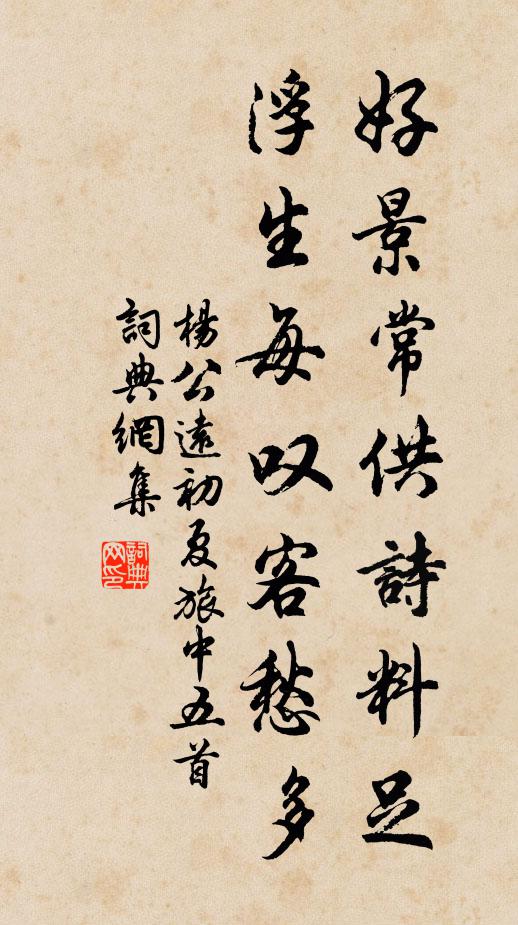 好景常供詩料足
浮生每叹客愁多
楊公遠初夏旅中五首
詞典網集
詞典
网印